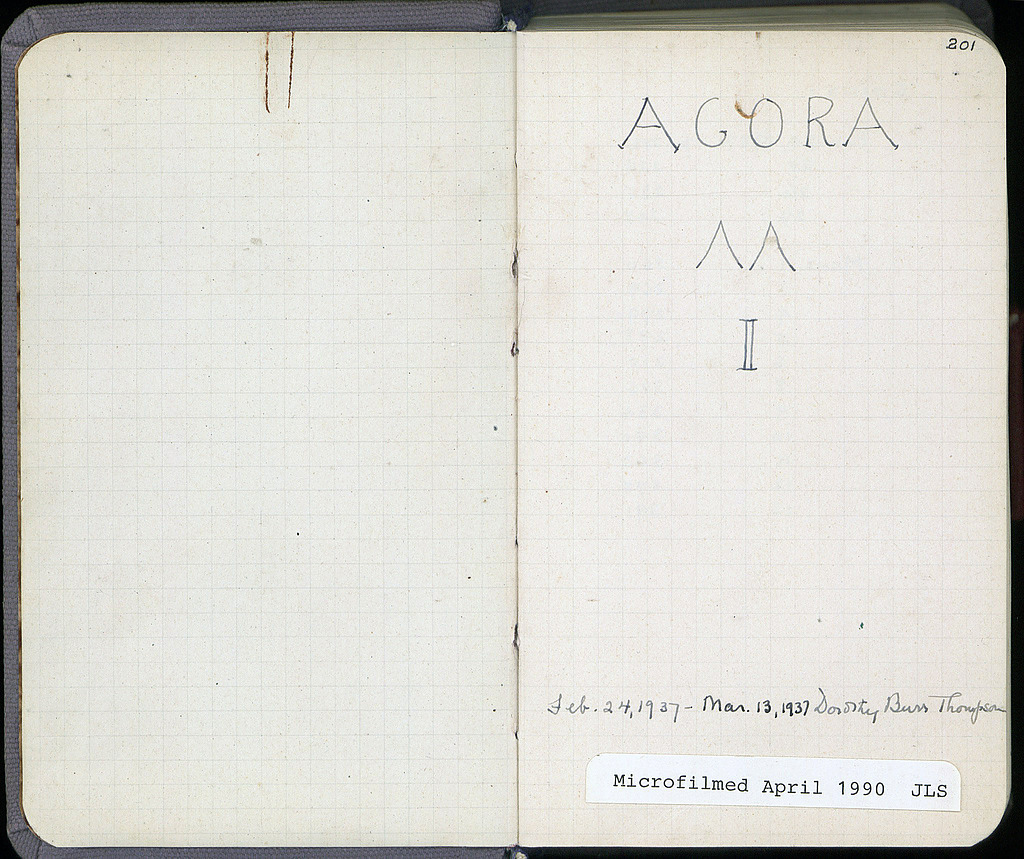 201
AGORA
ΛΛ
II
Feb. 24, 1937 - Mar. 13, 1937 Dorothy Burr Thompson
Microfilmed April 1990 JLS